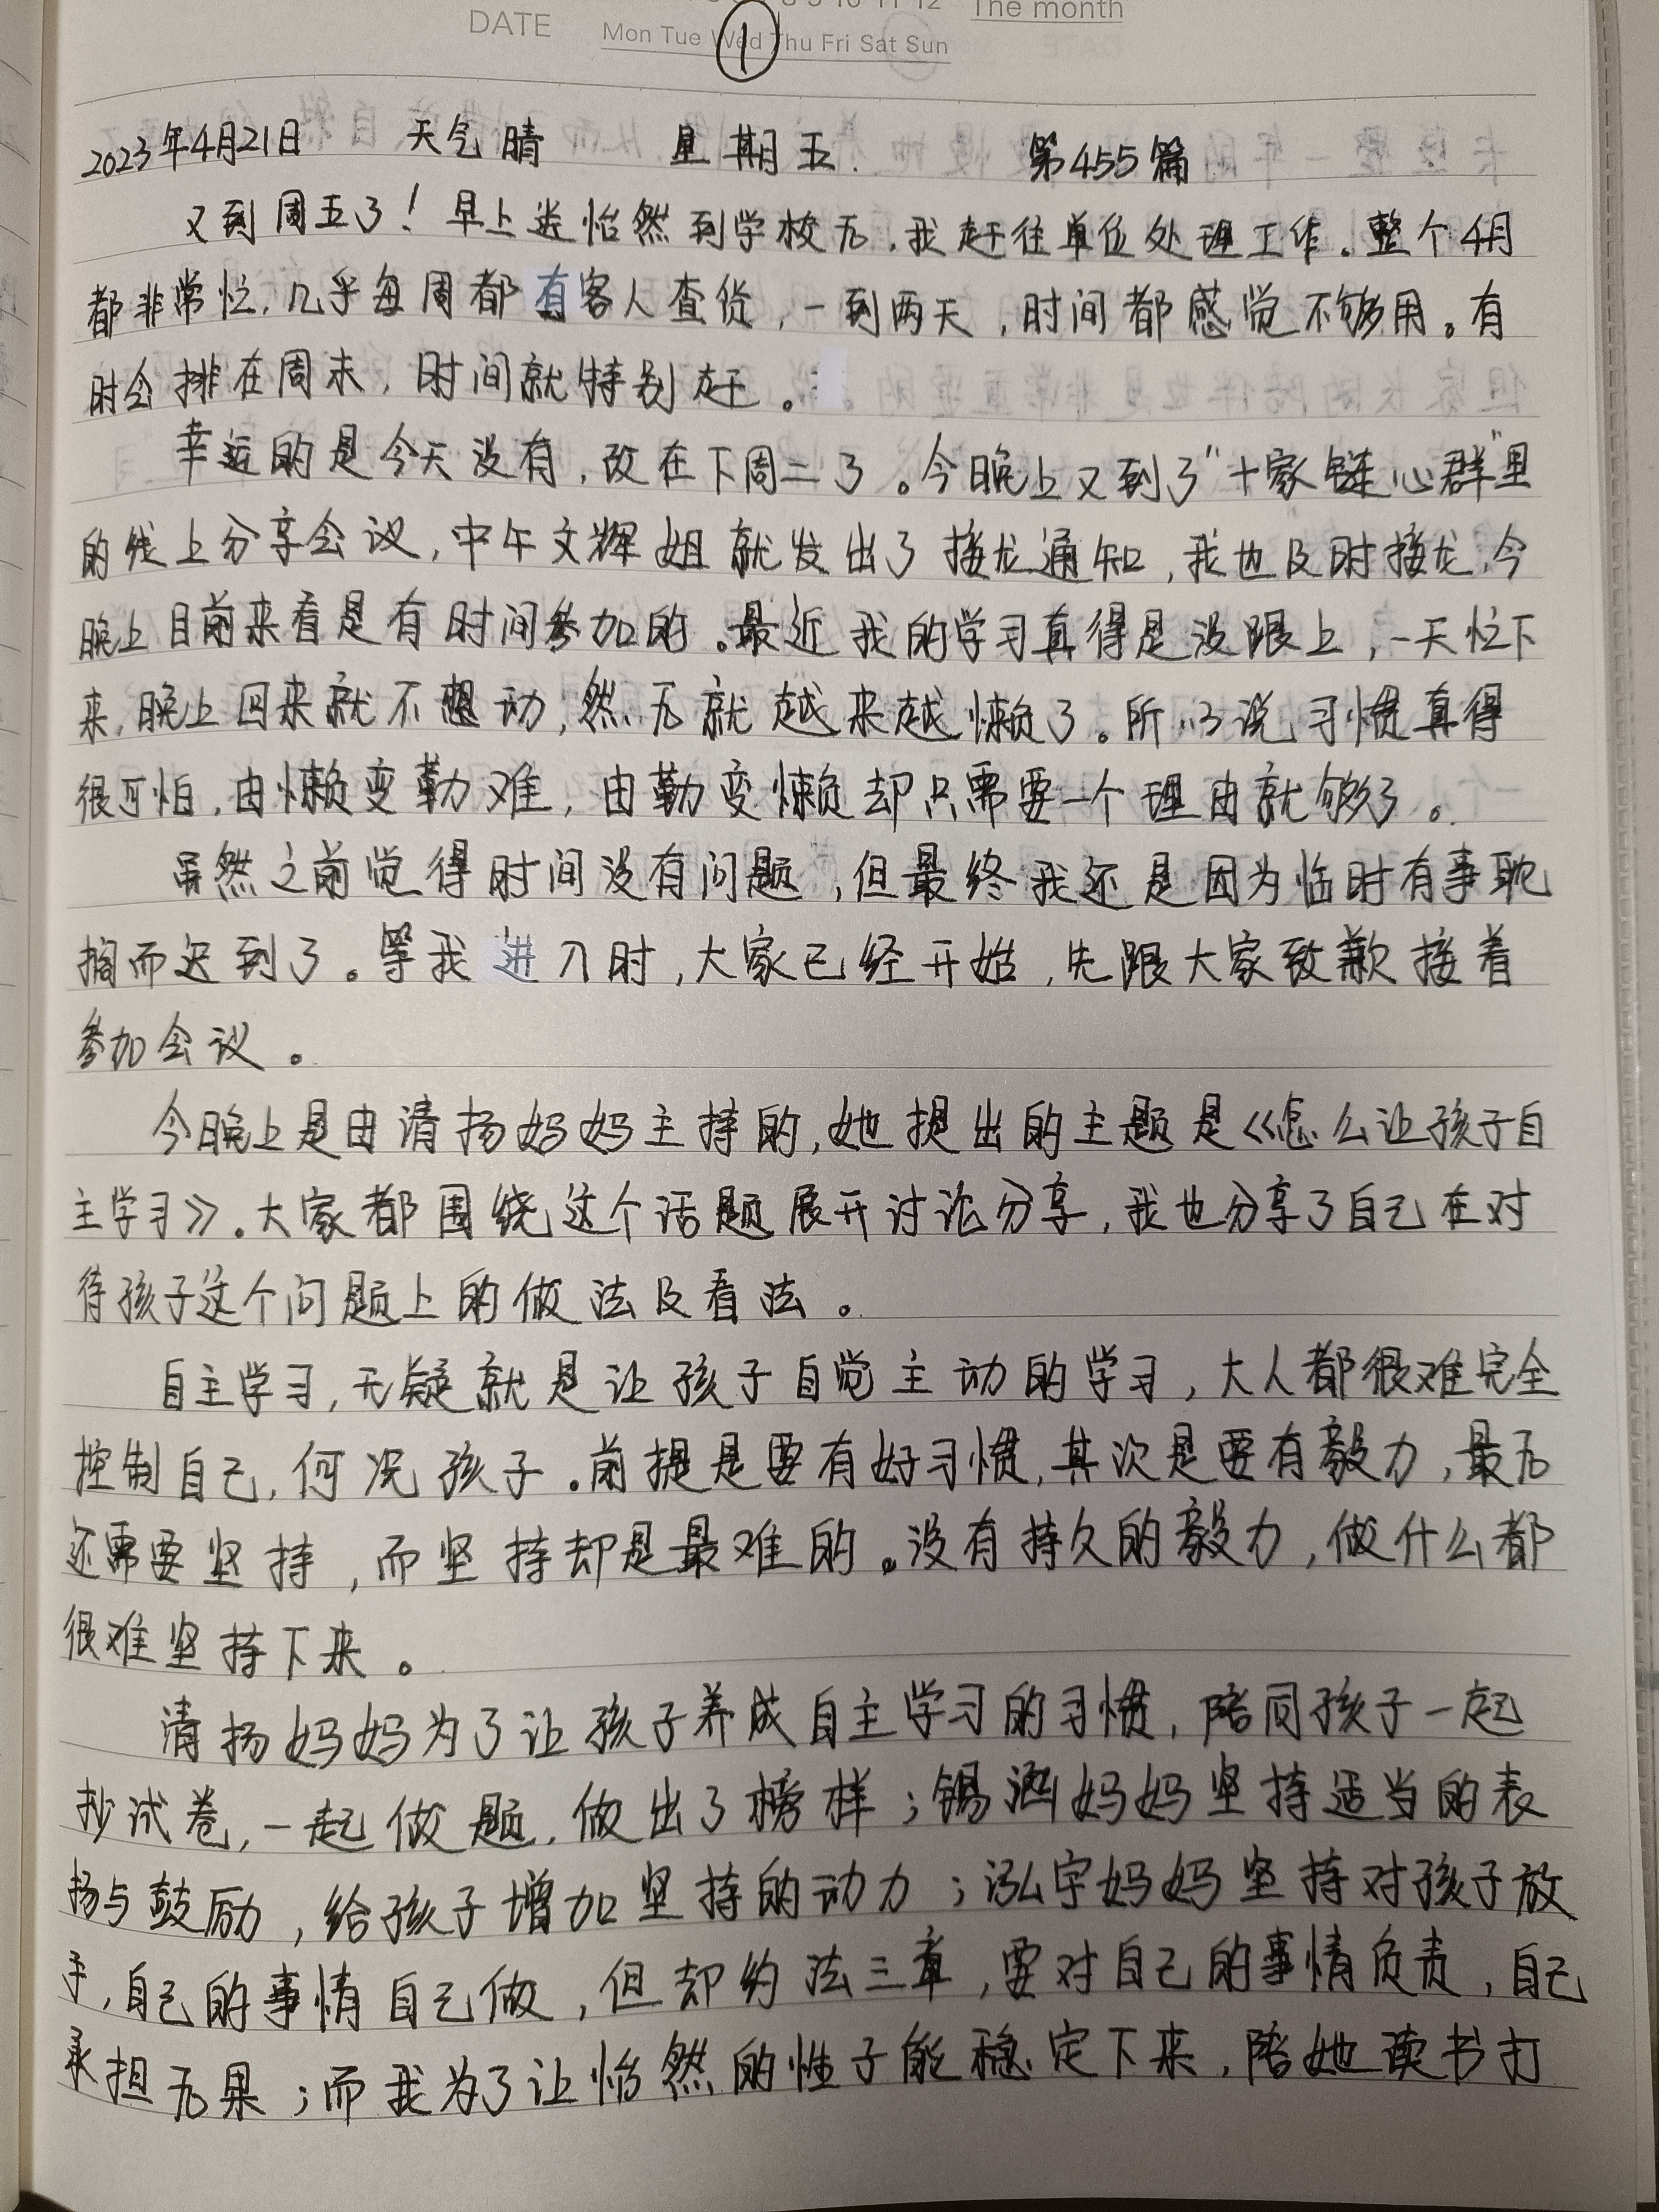 DATE
8 9 10 11 12 The month
Mon Tue Wed Thu Fri Sat Sun
1
2023年4月21日 天气晴 星期五. 第455篇
又到周五了！早上送怡然到学校后,我赶往单位处理工作.整个4月
都非常忙,几乎每周都有客人查货,一到两天,时间都感觉不够用。有
时会排在周末,时间就特别赶。
幸运的是今天没有,改在下周二了。今晚上又到了“十家链心群”里
的线上分享会议,中午文辉姐就发出了接龙通知,我也及时接龙,今
晚上目前来看是有时间参加的。最近我的学习真得是没跟上,一天忙下
来,晚上回来就不想动,然后就越来越懒了。所以说习惯真得
很可怕,由懒变勤难,由勤变懒却只需要一个理由就够了。
虽然之前觉得时间没有问题,但最终我还是因为临时有事耽
搁而迟到了。等我进入时,大家已经开始,先跟大家致歉接着
参加会议。
今晚上是由清扬妈妈主持的,她提出的主题是《怎么让孩子自
主学习》.大家都围绕这个话题展开讨论分享,我也分享了自己在对
待孩子这个问题上的做法及看法。
自主学习,无疑就是让孩子自觉主动的学习,大人都很难完全
控制自己,何况孩子.前提是要有好习惯,其次是要有毅力,最后
还需要坚持,而坚持却是最难的。没有持久的毅力,做什么都
很难坚持下来。
清扬妈妈为了让孩子养成自主学习的习惯,陪同孩子一起
抄试卷,一起做题,做出了榜样;锡涵妈妈坚持适当的表
扬与鼓励,给孩子增加坚持的动力;泓宇妈妈坚持对孩子放
手,自己的事情自己做,但却约法三章,要对自己的事情负责,自己
承担后果;而我为了让怡然的性子能稳定下来,陪她读书打